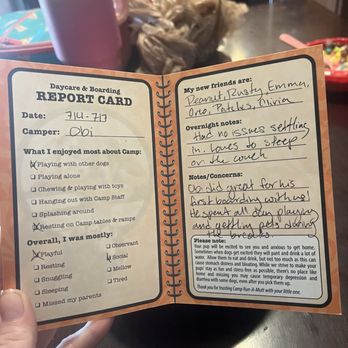 Daycare & Boarding
REPORT CARD
Date: 7/4 - 7/7
Camper: Obi
What I enjoyed most about Camp:
Playing with other dogs
Playing alone
Chewing & playing with toys
Hanging out with Camp Staff
Splashing around
Resting on Camp tables & ramps
Overall, I was mostly:
Playful
Resting
Snuggling
Sleeping
Missed my parents
Observant
Social
Mellow
Tired
My new friends are:
Peanut, Rusty, Emma,
Oreo, Patches, Olivia
Overnight notes:
Had no issues settling
in. Loves to sleep
on the couch
Notes/Concerns:
Obi did great for his
first boarding with us!
He spent all day playing
and getting pets during
the breaks.
Please note:
Your pup will be excited to see you and anxious to get home.
Sometimes when dogs get excited they will pant and drink a lot of
water. Allow them to eat and drink, but not too much as this can
cause stomach distress and bloating. While we strive to make your
pups' stay as fun and stress-free as possible, there's no place like
home and missing you may cause temporary depression and
diarrhea with some dogs, even after you pick them up.
Thank you for trusting Camp Run-A-Mutt with your little one.